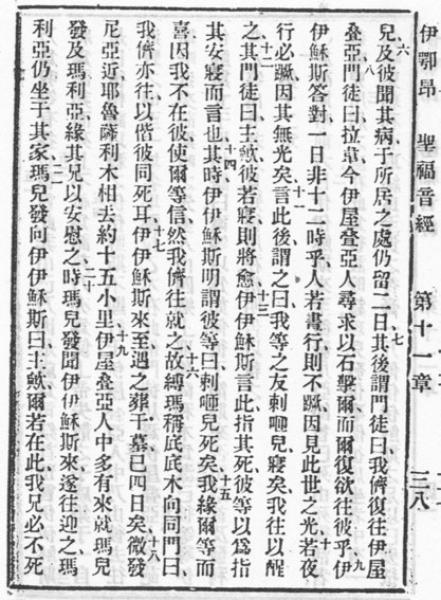 伊鄂昂 聖福音經 第十一章 三八
兒六及彼聞其病于所居之處仍留二日七其後謂門徒曰我儕復往伊屋
疊亞八門徒曰拉韋今伊屋疊亞人尋求以石擊爾而爾復欲往彼乎九伊
伊穌斯答對一日非十二時乎人若晝行則不蹶因見此世之光十若夜
行必蹶因其無光矣十一言此後謂之曰我等之友剌咂兒寢矣我往以醒
之十二其門徒曰主歟彼若寢則將愈十三伊伊穌斯言此指其死彼等以爲指
其安寢而言也十四其時伊伊穌斯明謂彼等曰剌咂兒死矣十五我緣爾等而
喜因我不在彼使爾等信然我儕往就之十六故縛瑪稱底底木向同門曰
我儕亦往以偕彼同死耳十七伊伊穌斯來至遇之葬于墓已四日矣十八微發
尼亞近耶魯薩利木相去約十五小里十九伊屋疊亞人中多有來就瑪兒
發及瑪利亞緣其兄以安慰之時二十瑪兒發聞伊伊穌斯來遂往迎之瑪
利亞仍坐于其家二一瑪兒發向伊伊穌斯曰主歟爾若在此我兄必不死